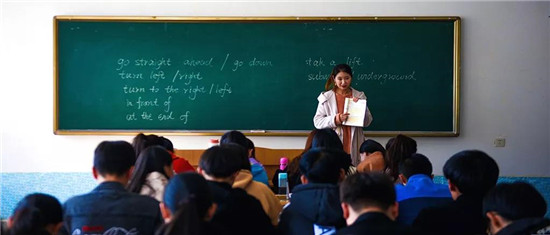 go straight / go down
turn left / right
turn to the right / left
in front of
at the end of
tak a lift
underground